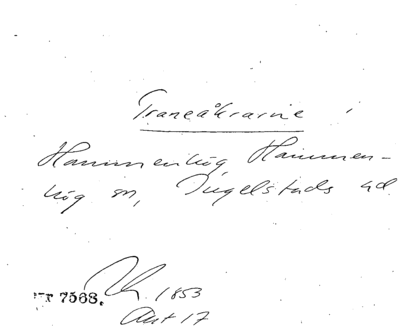 Traneåkrarne
Hammenhög, Hammen-
hög sn, Ingelstads hd
7568. 1853
Akt 17